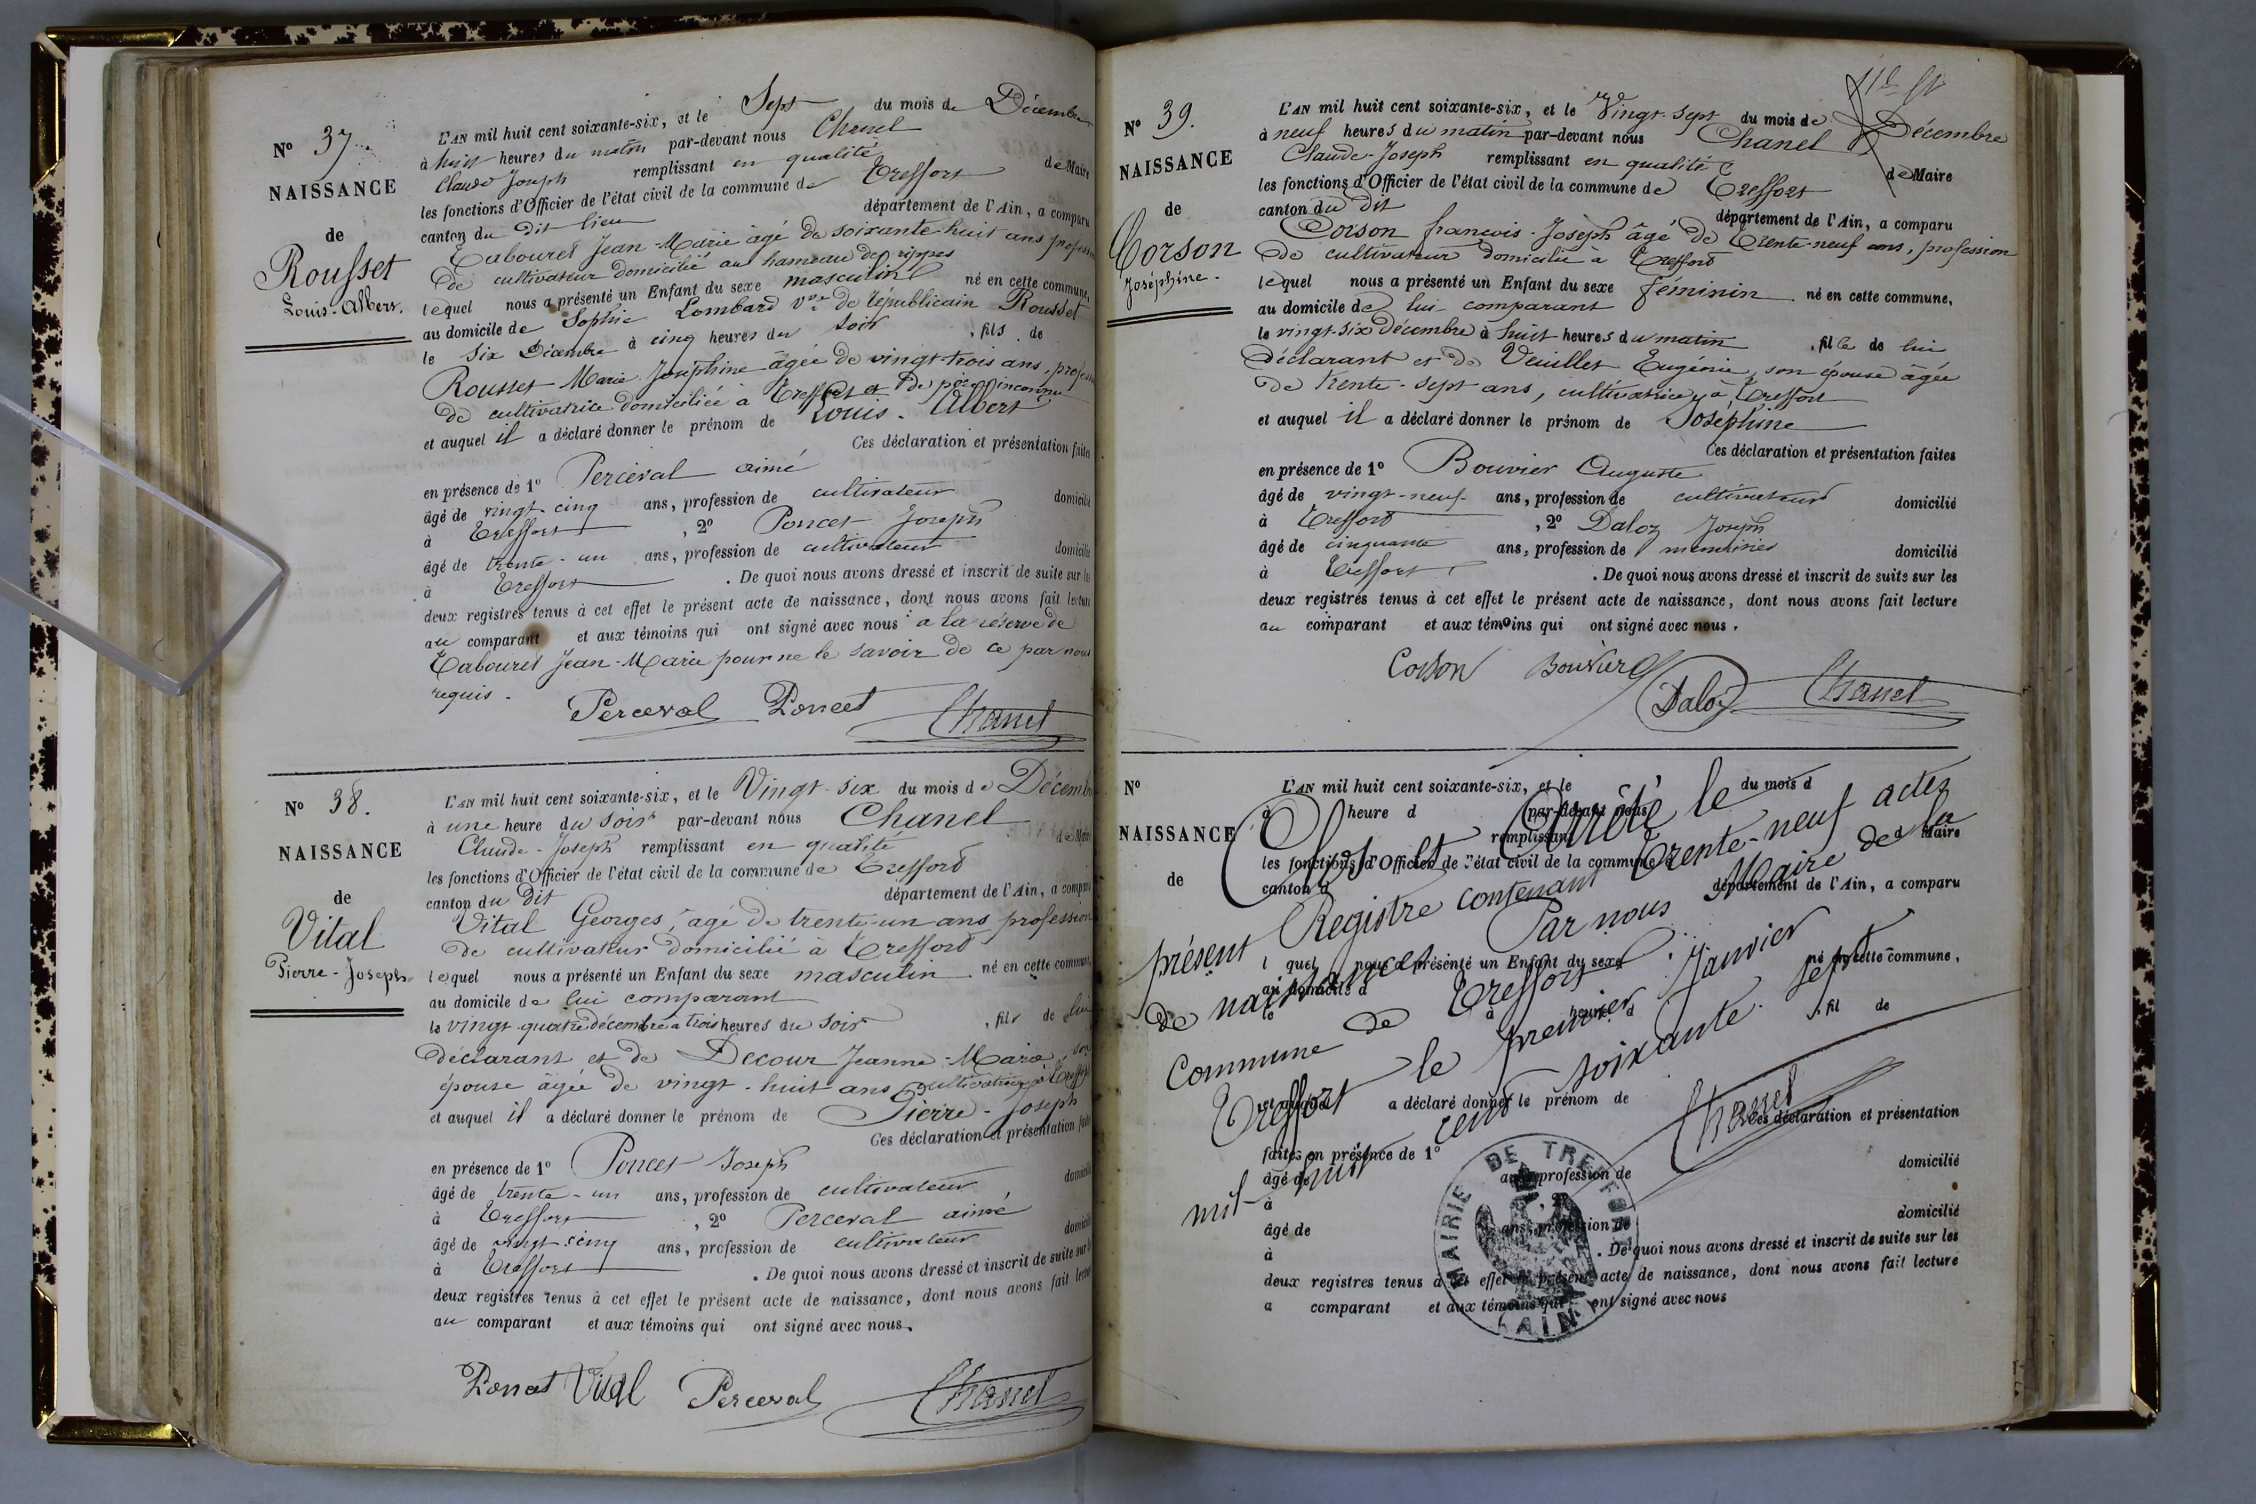 N° 37.
NAISSANCE
de
Rousset
Louis-Albert.
L'AN mil huit cent soixante-six, et le Sept du mois de Décembre
à huit heures du matin par-devant nous Chanel
Claude Joseph remplissant en qualité de Maire
les fonctions d'Officier de l'état civil de la commune de Treffort
canton du dit lieu département de l'Ain, a comparu
Tabouret Jean-Marie âgé de soixante-huit ans profession
de cultivateur domicilié au hameau de rippes
lequel nous a présenté un Enfant du sexe masculin né en cette commune,
au domicile de Sophie Lombard Vve de républicain Rousset
le six Décembre à cinq heures du soir, fils de
Rousset Marie Joséphine âgée de vingt-trois ans, profession
de cultivatrice domiciliée à Treffort et de père inconnu
et auquel il a déclaré donner le prénom de Louis-Albert
Ces déclaration et présentation faites
en présence de 1° Perceval aimé
âgé de vingt-cinq ans, profession de cultivateur domicilié
à Treffort, 2° Poncet Joseph
âgé de trente-un ans, profession de cultivateur domicilié
à Treffort. De quoi nous avons dressé et inscrit de suite sur les
deux registres tenus à cet effet le présent acte de naissance, dont nous avons fait lecture
au comparant et aux témoins qui ont signé avec nous a la réserve de
Tabouret Jean-Marie pour ne le savoir de ce par nous
requis.
Perceval Poncet Chanel
N° 38.
NAISSANCE
de
Vital
Pierre-Joseph
L'AN mil huit cent soixante-six, et le Vingt-six du mois de Décembre
à une heure du soir par-devant nous Chanel
Claude-Joseph remplissant en qualité de Maire
les fonctions d'Officier de l'état civil de la commune de Treffort
canton du dit département de l'Ain, a comparu
Vital Georges, âgé de trente-un ans profession
de cultivateur domicilié à Treffort
lequel nous a présenté un Enfant du sexe masculin né en cette commune,
au domicile de lui comparant
le vingt-quatre décembre à trois heures du soir, fils de lui
déclarant et de Decour Jeanne-Marie, son
épouse âgée de vingt-huit ans cultivatrice à Treffort
et auquel il a déclaré donner le prénom de Pierre-Joseph
Ces déclaration et présentation faites
en présence de 1° Poncet Joseph
âgé de trente-un ans, profession de cultivateur domicilié
à Treffort, 2° Perceval aimé
âgé de vingt-cinq ans, profession de cultivateur domicilié
à Treffort. De quoi nous avons dressé et inscrit de suite sur les
deux registres tenus à cet effet le présent acte de naissance, dont nous avons fait lecture
au comparant et aux témoins qui ont signé avec nous.
Poncet Vital Perceval Chanel
N° 39.
NAISSANCE
de
Corson
Joséphine.
L'AN mil huit cent soixante-six, et le Vingt-sept du mois de Décembre
à neuf heures du matin par-devant nous Chanel
Claude-Joseph remplissant en qualité de Maire
les fonctions d'Officier de l'état civil de la commune de Treffort
canton du dit département de l'Ain, a comparu
Corson françois-Joseph âgé de trente-neuf ans, profession
de cultivateur domicilié à Treffort
lequel nous a présenté un Enfant du sexe feminin né en cette commune,
au domicile de lui comparant
le vingt-six décembre à huit heures du matin, fille de lui
déclarant et de Veuillet Eugénie, son épouse âgée
de trente-sept ans, cultivatrice à Treffort
et auquel il a déclaré donner le prénom de Joséphine
Ces déclaration et présentation faites
en présence de 1° Bouvier Auguste
âgé de vingt-neuf ans, profession de cultivateur domicilié
à Treffort, 2° Daloz Joseph
âgé de cinquante ans, profession de menuisier domicilié
à Treffort. De quoi nous avons dressé et inscrit de suite sur les
deux registres tenus à cet effet le présent acte de naissance, dont nous avons fait lecture
au comparant et aux témoins qui ont signé avec nous.
Corson Bouvier Daloz Chanel
N°
NAISSANCE
de
L'AN mil huit cent soixante-six, et le du mois d
à heure d par-devant nous
remplissant d Maire
les fonctions d'Officier de l'état civil de la commune d
canton d département de l'Ain, a comparu
l quel nous a présenté un Enfant du sexe né en cette commune,
au domicile d
le à heure d, fil de
et auquel a déclaré donner le prénom de
Ces déclaration et présentation
faites en présence de 1°
âgé de ans, profession de domicilié
à, 2°
âgé de ans, profession de domicilié
à. De quoi nous avons dressé et inscrit de suite sur les
deux registres tenus à cet effet le présent acte de naissance, dont nous avons fait lecture
a comparant et aux témoins qui ont signé avec nous
Clos et Arrêté le
présent Registre contenant trente-neuf actes
de naissances Par nous Maire de la
Commune de Treffort.
Treffort le premier Janvier
mil huit cent soixante-sept
Chanel
MAIRIE DE TREFFORT
(AIN)